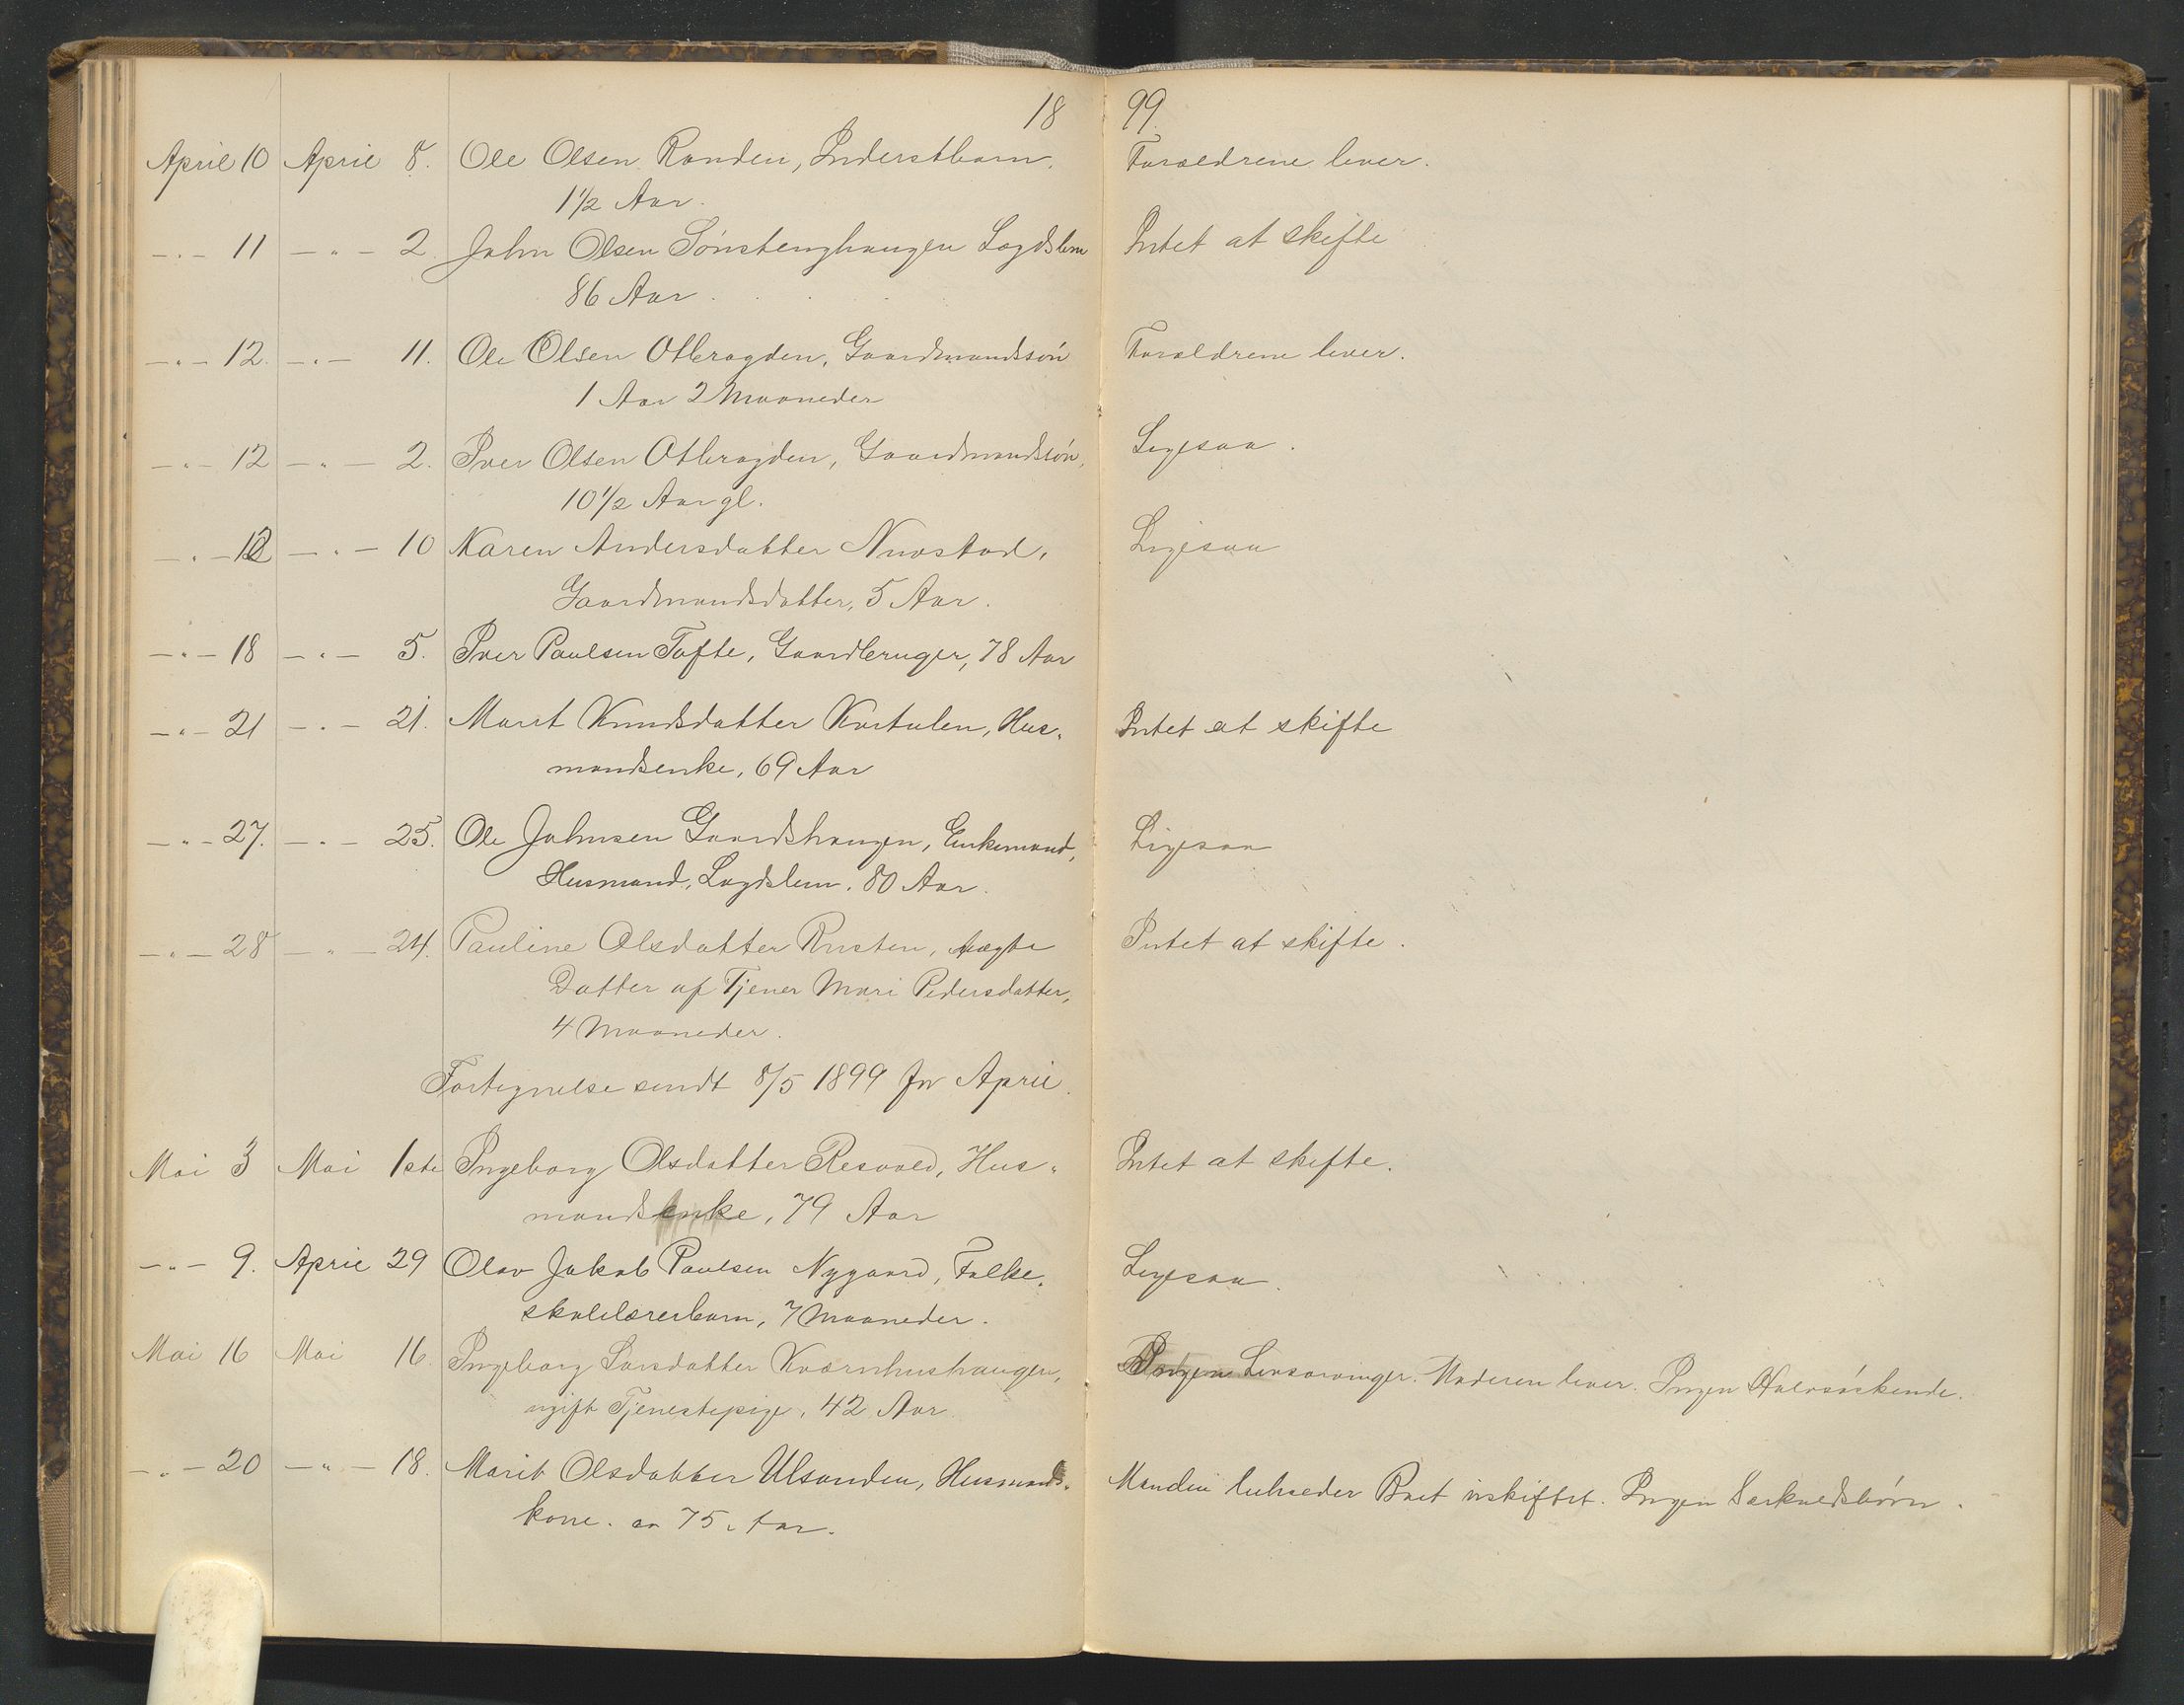 18 99.
April 10 April 8. Ole Olsen Randen, Inderstbarn. Forældrene lever.
1½ Aar.
-"- 11 -"- 2. John Olsen Sønstenghaugen Lægdslem Intet at skifte
86 Aar.
-"- 12. -"- 11. Ole Olsen Otbragden, Gaardmandssøn Forældrene lever.
1 Aar 2 Maaneder
-"- 12 -"- 2. Iver Olsen Otbragden, Gaardmandssøn, Ligesaa.
10½ Aar gl.
-"- 12 -"- 10 Karen Andersdatter Nuvstad, Ligesaa
Gaardmandsdatter, 5 Aar.
-"- 18 -"- 5. Iver Paulsen Tofte, Gaardbruger, 78 Aar
-"- 21 -"- 21. Marit Knudsdatter Kortulen, Hus- Intet at skifte
mandsenke, 69 Aar
-"- 27. -"- 25. Ole Johnsen Gaardshaugen, Enkemand, Ligesaa
Husmand, Lægdslem. 80 Aar.
-"- 28 -"- 24. Pauline Olsdatter Rusten, uægte Intet at skifte.
Datter af Tjener Mari Pedersdatter,
4 Maaneder.
Fortegnelse sendt 8/5 1899 for April.
Mai 3 Mai 1ste Ingeborg Olsdatter Resvold, Hus- Intet at skifte.
mandsenke, 79 Aar
-"- 9. April 29 Olav Jakob Paulsen Nygaard, Folke- Ligesaa.
skolelærerbarn, 7 Maaneder.
Mai 16 Mai 16. Ingeborg Larsdatter Kværnhushaugen, Ingen Livsarvinger. Moderen lever. Ingen Halvsøskende.
ugift Tjenestepige, 42 Aar.
-"- 20 -"- 18. Marit Olsdatter Ulsanden, Husmands- Manden behæder Boet uskiftet. Ingen Særkuldsbørn.
kone. ca 75 Aar.